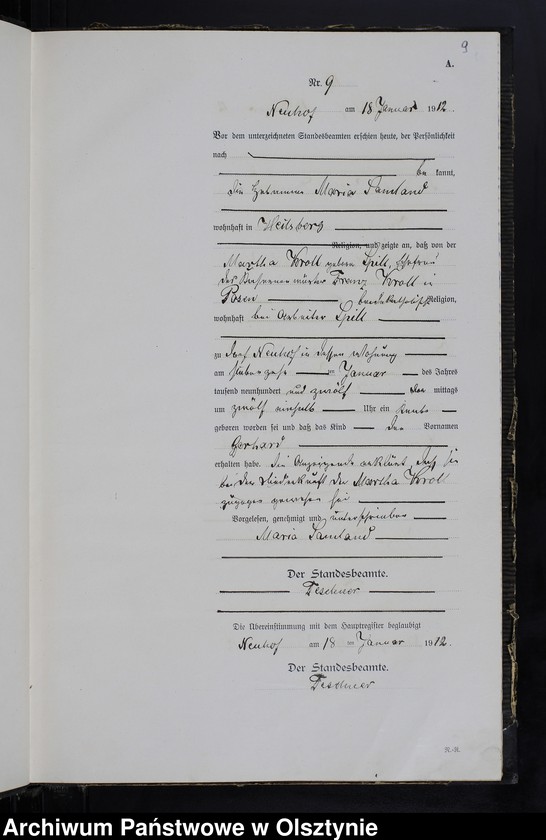 9
A.
Nr. 9
Neuhof am 18 Januar 1912.
Vor dem unterzeichneten Standesbeamten erschien heute, der Persönlichkeit
nach
be kannt,
die Hebamme Maria Samland
wohnhaft in Heilsberg
Religion, und zeigte an, daß von der
Martha Kroll geborn Spill, Ehefrau
des Franz Kroll in
Posen Religion,
wohnhaft bei Arbeiter Spill
zu Dorf Neuhof in dessen Wohnung
am Januar des Jahres
tausend neunhundert und zwölf mittags
um zwölf einhalb Uhr ein Knabe
geboren worden sei und daß das Kind den Vornamen
Gerhard
erhalten habe. Die Anzeigende erklärt, daß sie
bei der Niederkunft der Martha Kroll
zugegen gewesen sei
Vorgelesen, genehmigt und unterschrieben
Maria Samland
Der Standesbeamte.
Teschner
Die Übereinstimmung mit dem Hauptregister beglaubigt
Neuhof am 18 Januar 1912.
Der Standesbeamte.
Teschner
Archiwum Państwowe w Olsztynie